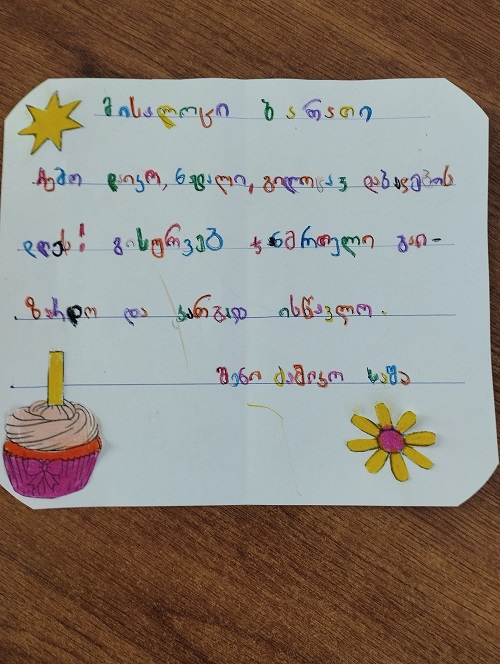 მისალოცი ბარათი
ჩემო დაიკო, ნატალი, გილოცავ დაბადების
დღეს! გისურვებ ჯანმრთელი გაი-
ზარდო და კარგად ისწავლო.
შენი ძამიკო საბა